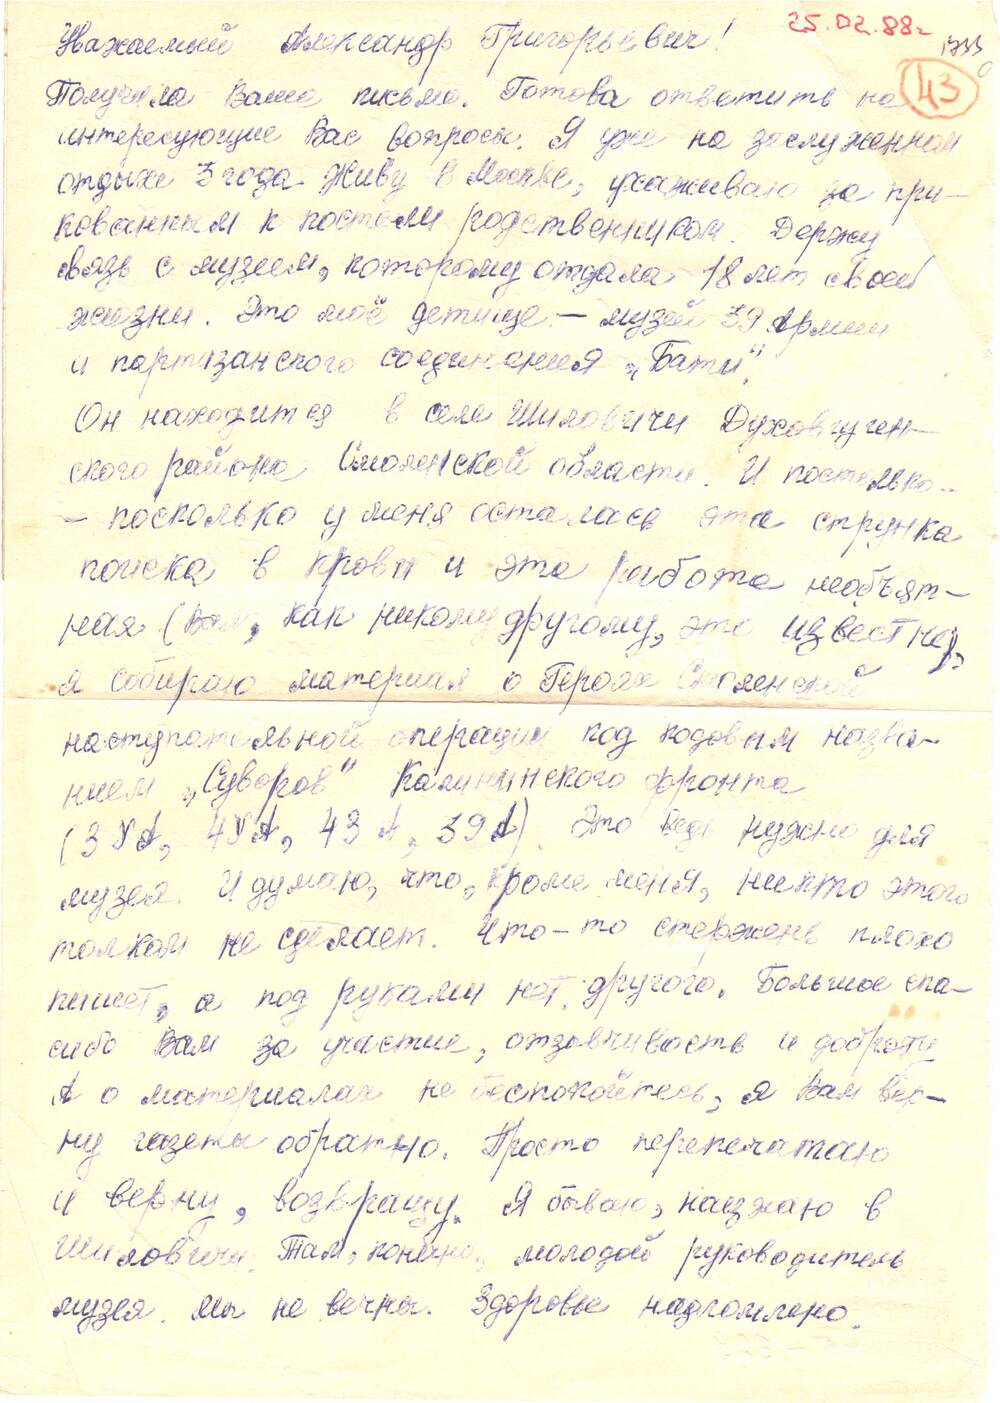 25.02.88г
1733
43
Уважаемый Александр Григорьевич!
Получила Ваше письмо. Готова ответить на
интересующие Вас вопросы. Я уже на заслуженном
отдыхе 3 года. Живу в Москве, ухаживаю за при-
кованным к постели родственником. Держу
связь с музеем, которому отдала 18 лет своей
жизни. Это моё детище – музей 39 Армии
и партизанского соединения „Бати".
Он находится в селе Шиловичи Духовщин-
ского района Смоленской области. И постолько-
- поскольку у меня осталась эта струнка
поиска в крови и эта работа необъят-
ная (Вам, как никому другому, это известно),
я собираю материал о Героях Смоленской
наступательной операции под кодовым назва-
нием „Суворов" Калининского фронта
(3 УА, 4УА, 43 А, 39 А). Это ведь нужно для
музея. И думаю, что, кроме меня, никто этого
толком не сделает. Что-то стержень плохо
пишет, а под руками нет другого. Большое спа-
сибо Вам за участие, отзывчивость и доброту
А о материалах не беспокойтесь, я Вам вер-
ну газеты обратно. Просто перепечатаю
и верну, возвращу. Я бываю, наезжаю в
Шиловичи. Там, конечно, молодой руководитель
музея. Мы не вечны. Здоровье надломлено.